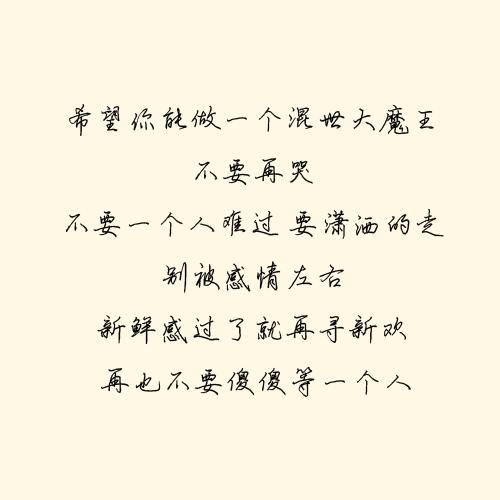 希望你能做一个混世大魔王
不要再哭
不要一个人难过 要潇洒的走
别被感情左右
新鲜感过了就再寻新欢
再也不要傻傻等一个人